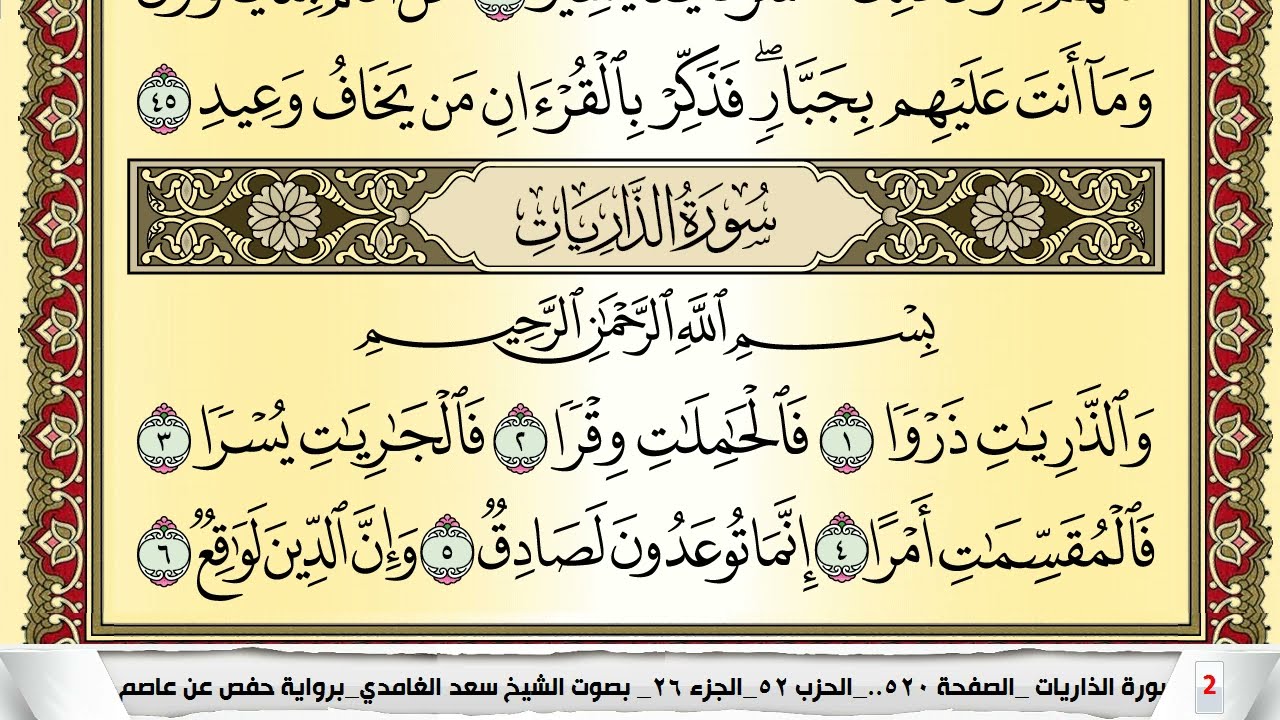 وَمَآ أَنتَ عَلَيْهِم بِجَبَّارٍۖ فَذَكِّرْ بِٱلْقُرْءَانِ مَن يَخَافُ وَعِيدِ ٤٥
سُورَةُ الذَّارِيَاتِ
بِسْمِ ٱللَّهِ ٱلرَّحْمَٰنِ ٱلرَّحِيمِ
وَٱلذَّٰرِيَٰتِ ذَرْوًا ١ فَٱلْحَٰمِلَٰتِ وِقْرًا ٢ فَٱلْجَٰرِيَٰتِ يُسْرًا ٣
فَٱلْمُقَسِّمَٰتِ أَمْرًا ٤ إِنَّمَا تُوعَدُونَ لَصَادِقٌ ٥ وَإِنَّ ٱلدِّينَ لَوَٰقِعٌ ٦
2 سورة الذاريات _الصفحة ٥٢٠.._الحزب ٥٢_الجزء ٢٦_ بصوت الشيخ سعد الغامدي_برواية حفص عن عاصم